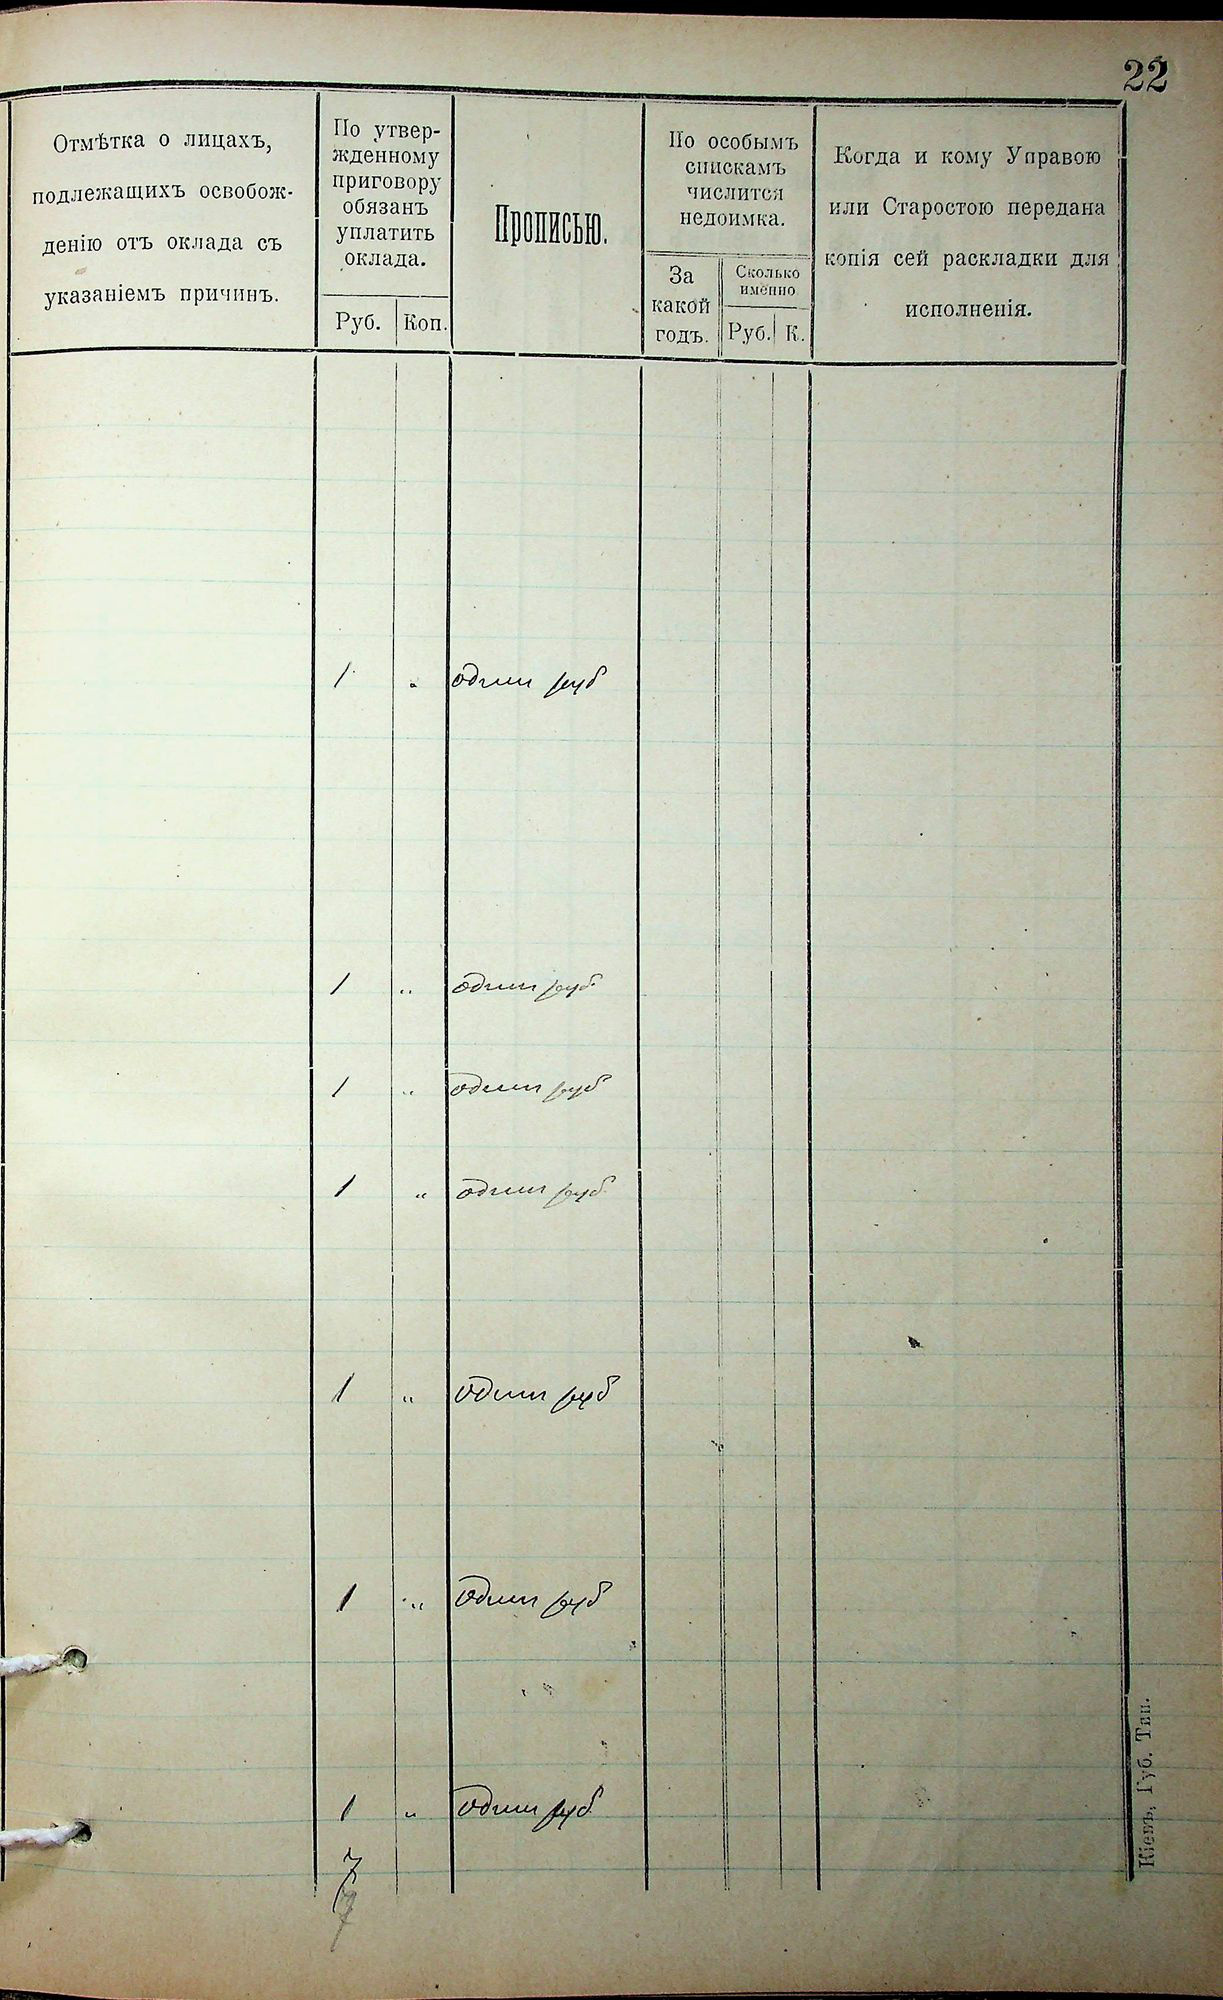 22
Отмѣтка о лицахъ,
подлежащихъ освобож-
денію отъ оклада съ
указаніемъ причинъ.
По утвер-
жденному
приговору
обязанъ
уплатить
оклада.
Руб. Коп.
Прописью.
По особымъ
спискамъ
числится
недоимка.
За
какой
годъ.
Сколько
именно
Руб. К.
Когда и кому Управою
или Старостою передана
копія сей раскладки для
исполненія.
1 " один руб
1 " один руб.
1 " один руб
1 " один руб.
1 " один руб
1 " один руб
1 " один руб
7
7
Кіевъ, Губ. Тип.